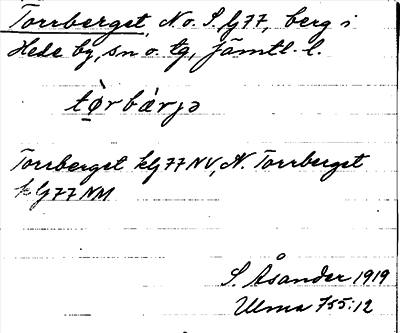 Torrberget, N o. S. kJ 77, berg i
Hede by, sn o. tg, Jämtl. l.
tø̀rbærjə
Torrberget kJ 77 NV, N. Torrberget
kJ 77 NM
S. Åsander 1919
Ulma 755:12